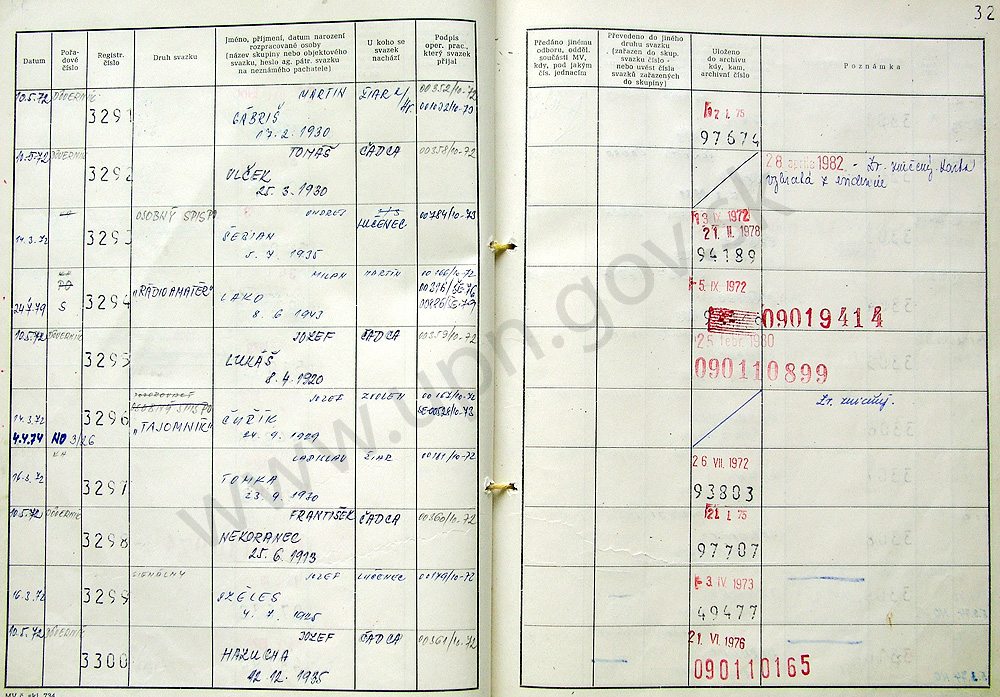 32
Datum
Pořadové číslo
Registr. číslo
Druh svazku
Jméno, příjmení, datum narození rozpracované osoby (název skupiny nebo objektového svazku, heslo ag. pátr. svazku na neznámého pachatele)
U koho se svazek nachází
Podpis oper. prac., který svazek přijal
Předáno jinému odboru, odděl. součásti MV, kdy, pod jakým čís. jednacím
Převedeno do jiného druhu svazku (zařazen do skup. svazku číslo - nebo uvést čísla svazků zařazených do skupiny)
Uloženo do archivu kdy, kam, archivní číslo
Poznámka
10.5.72 DÔVERNÍK 3291 MARTIN ŽIAR n/Hr 00352/10-72
GÁBRIŠ
13.2.1930
97674
10.5.72 DÔVERNÍK 3292 TOMÁŠ ČADCA 00358/10-72
VLČEK
25.3.1930
28. apríla 1982 - Zr. zničený. Karta
z evidencie
OSOBNÝ SPIS PO ONDREJ LUČENEC 00784/10-73
14.3.72 3293 ŠEBIAN
5.7.1935
13 IX 1972
21. II. 1978
94189
PO MILAN MARTIN 00166/10-72
24.7.79 S 3294 "RÁDIOAMATÉR" LAKO 00216/ŠE-76
8.6.1943
5. IX 1972
09019414
10.5.72 DÔVERNÍK 3295 JOZEF ČADCA 00359/10-72
LUKÁŠ
8.4.1920
25. febr. 1980
090110899
OSOBNÝ SPIS PO JOZEF ZVOLEN 00167/10-72
14.3.72 3296 "TAJOMNÍK" ČURÍK
4.4.74 NO 3/26 24.9.1929
Zr. zničený.
KA LADISLAV ŽIAR 00181/10-72
16.3.72 3297 TOMKA
23.9.1930
26 VII. 1972
93803
10.5.72 DÔVERNÍK 3298 FRANTIŠEK ČADCA 00360/10-72
NEKORANEC
25.6.1913
21. I. 75
97707
SIGNÁLNY JOZEF LUČENEC 00179/10-72
16.3.72 3299 SZÉLES
4.7.1925
3. IV 1973
49477
10.5.72 DÔVERNÍK 3300 JOZEF ČADCA 00361/10-72
HALUCHA
12.12.1935
21. VI. 1976
090110165
www.upn.gov.sk